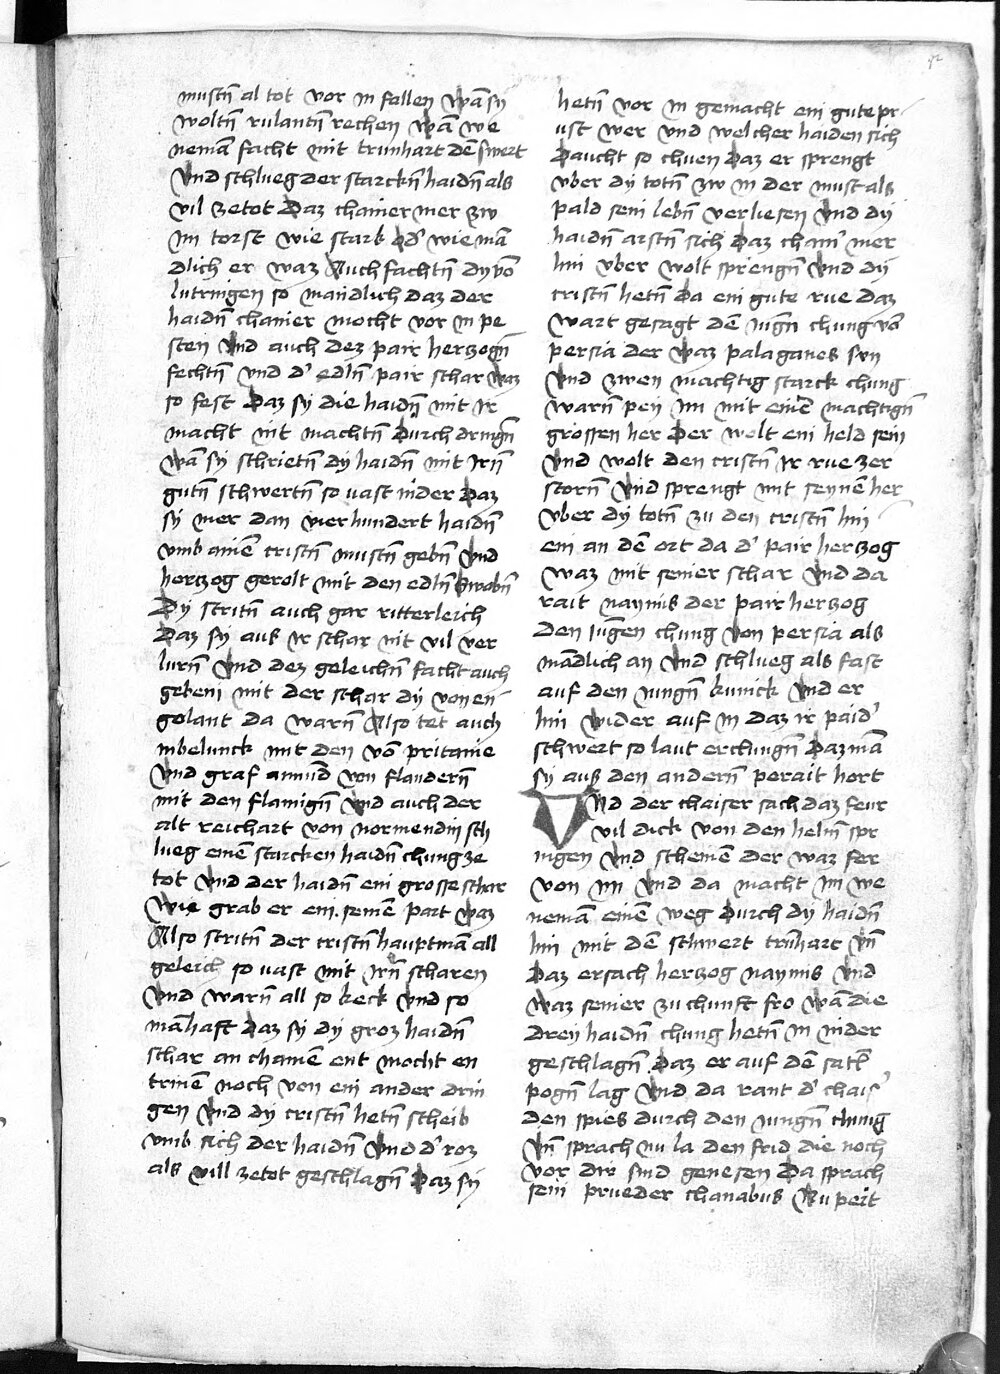 92
mustn̄ al tot vor in fallen wā sy
woltn̄ rulantn̄ rechen wā we
nemā facht mit trunhart dē swert
vnd schlueg der starckn̄ haidn̄ als
vil ze tot daz chainer mer zw
im torst wie stark od' wie mā
dlich er waz Auch fachtn̄ dy võ
lutringen so mandlich daz der
haidn̄ chainer mocht vor in pe
sten vnd auch dez pair herzogn̄
fechtn̄ vnd d' edln̄ pair schar waz
so fest daz sy die haidn̄ mit ir
macht nit machtn̄ durch dringn̄
wā sy schrietn̄ dy haidn̄ mit irn̄
gutn̄ schwertn̄ so vast nider daz
sy mer dan vier hundert haidn̄
vmb ainē cristn̄ mustn̄ gebn̄ vnd
hertzog gerolt mit den edln̄ swobn̄
dy stritn̄ auch gar ritterleich
daz sy aus ir schar nit vil ver
lurn̄ vnd dez geleichn̄ facht auch
gebeni mit der schar dy von en
golant da warn̄ Also tet auch
nibelunck mit den võ pritanie
vnd graf annud von flandern̄
mit den flamign̄ vnd auch der
alt reichart von normendin sch
lueg einē starcken haidn̄ chung ze
tot vnd der haidn̄ ein grosse schar
wie grab er ein seinē part waz
Also stritn̄ der cristn̄ hauptmā all
geleich so vast mit irn̄ scharen
vnd warn̄ all so keck vnd so
mā haft daz sy dy groz haidn̄
schar an chainē ent mocht en
trinē noch von ein ander drin
gen vnd dy cristn̄ hetn̄ scheib
vmb sich der haidn̄ vnd d' roz
als vill ze tot geschlagn̄ daz sy
hetn̄ vor in gemacht ein gute pr
ust wer vnd welcher haiden sich
daucht so chuen daz er sprengt
vber dy totn̄ zw in der must als
pald sein lebn̄ verliesen vnd dy
haidn̄ arstn̄ sich daz cham' mer
hin vber wolt sprengn̄ vnd dy
cristn̄ hetn̄ da ein gute rue daz
wart gesagt dē iūgn̄ chung võ
persia der waz palaganes svn
vnd zwen machtig starck chung
warn̄ pey im mit einē machtign̄
grossen her der wolt ein held sein
vnd wolt den cristn̄ ir rue zer
storn̄ vnd sprengt mit seynē her
vber dy totn̄ zu den cristn̄ hin
ein an dē ort da d' pair hertzog
waz mit seiner schar vnd da
rait naymis der pair herzog
den iūgen chung von persia als
mādlich an vnd schlueg als fast
auf den iungn̄ kunick vnd er
hin wider auf in daz ir paid'
schwert so laut erchlungn̄ daz mā
sy aus den andern̄ perait hort
Vnd der chaiser sach daz feur
vil dick von den helmn̄ spr
ingen vnd scheinē der waz fer
von im vnd da macht im we
nemā einē weg durch dy haidn̄
hin mit dē schwert trūhart vn̄
daz ersach hertzog naymis vnd
waz seiner zu chunft fro wā die
drey haidn̄ chung hetn̄ in nider
geschlagn̄ daz er auf dē satl
pogn̄ lag vnd da rant d' chais'
den spies durch den iungn̄ chung
vn̄ sprach nu la den frid die noch
vor dir sind genesen da sprach
sein prueder chanabus Rupert